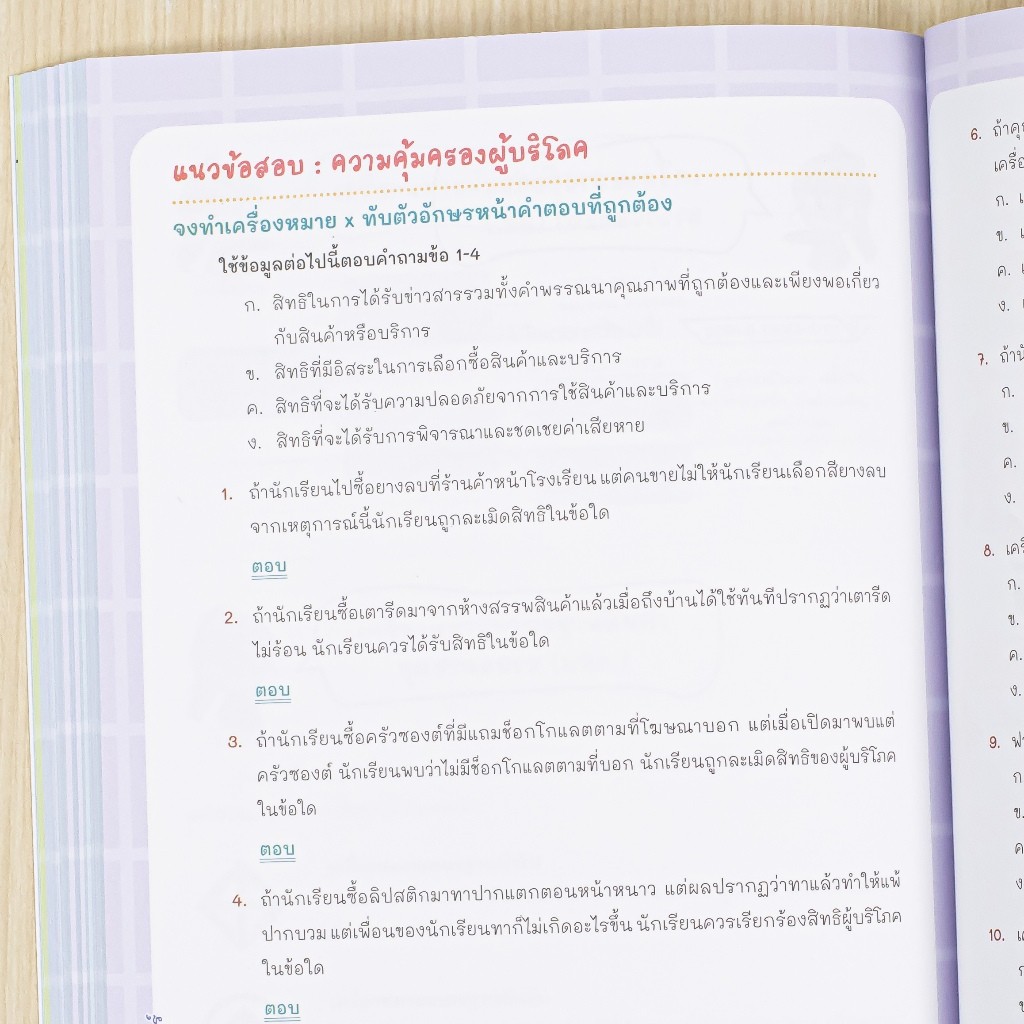 แนวข้อสอบ : ความคุ้มครองผู้บริโภค
จงทำเครื่องหมาย x ทับตัวอักษรหน้าคำตอบที่ถูกต้อง
ใช้ข้อมูลต่อไปนี้ตอบคำถามข้อ 1-4
ก. สิทธิในการได้รับข่าวสารรวมทั้งคำพรรณนาคุณภาพที่ถูกต้องและเพียงพอเกี่ยว
กับสินค้าหรือบริการ
ข. สิทธิที่มีอิสระในการเลือกซื้อสินค้าและบริการ
ค. สิทธิที่จะได้รับความปลอดภัยจากการใช้สินค้าและบริการ
ง. สิทธิที่จะได้รับการพิจารณาและชดเชยค่าเสียหาย
1. ถ้านักเรียนไปซื้อยางลบที่ร้านค้าหน้าโรงเรียน แต่คนขายไม่ให้นักเรียนเลือกสียางลบ
จากเหตุการณ์นี้นักเรียนถูกละเมิดสิทธิในข้อใด
ตอบ
2. ถ้านักเรียนซื้อเตารีดมาจากห้างสรรพสินค้าแล้วเมื่อถึงบ้านได้ใช้ทันทีปรากฏว่าเตารีด
ไม่ร้อน นักเรียนควรได้รับสิทธิในข้อใด
ตอบ
3. ถ้านักเรียนซื้อครัวซองต์ที่มีแถมช็อกโกแลตตามที่โฆษณาบอก แต่เมื่อเปิดมาพบแต่
ครัวซองต์ นักเรียนพบว่าไม่มีช็อกโกแลตตามที่บอก นักเรียนถูกละเมิดสิทธิของผู้บริโภค
ในข้อใด
ตอบ
4. ถ้านักเรียนซื้อลิปสติกมาทาปากแตกตอนหน้าหนาว แต่ผลปรากฏว่าทาแล้วทำให้แพ้
ปากบวม แต่เพื่อนของนักเรียนทาก็ไม่เกิดอะไรขึ้น นักเรียนควรเรียกร้องสิทธิผู้บริโภค
ในข้อใด
ตอบ
6. ถ้าคุ
ก.
ข.
ค.
ง.
7.
ก.
ข.
ค.
ง.
8.
ก.
ข.
ค.
ง.
9.
ก
ข.
ค
ง
10.